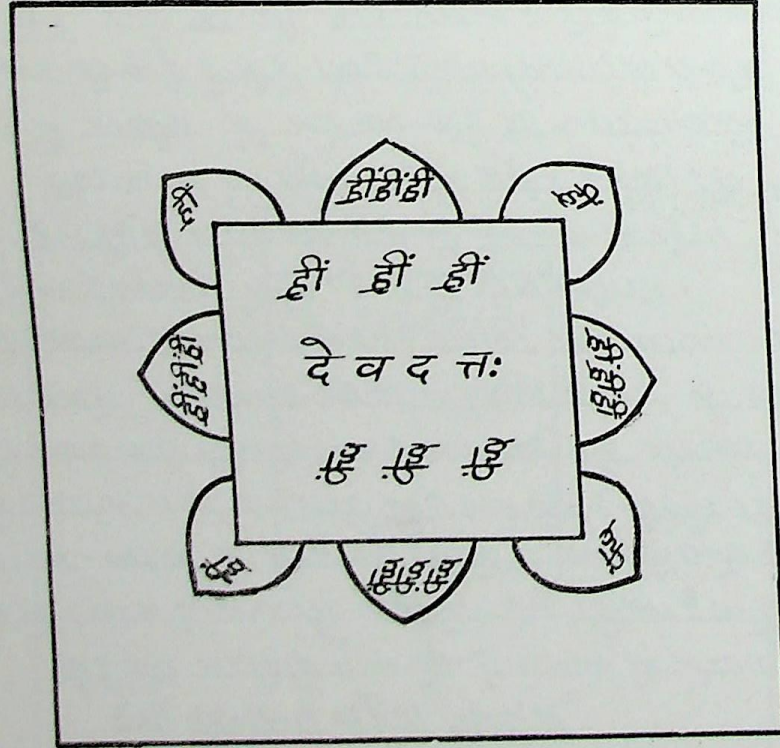 ह्रींह्रींह्रीं
ह्रीं ह्रीं ह्रीं
ह्रींह्रींह्रीं
दे व द त्तः
ह्रींह्रींह्रीं
ह्रीं ह्रीं ह्रीं
ह्रींह्रींह्रीं